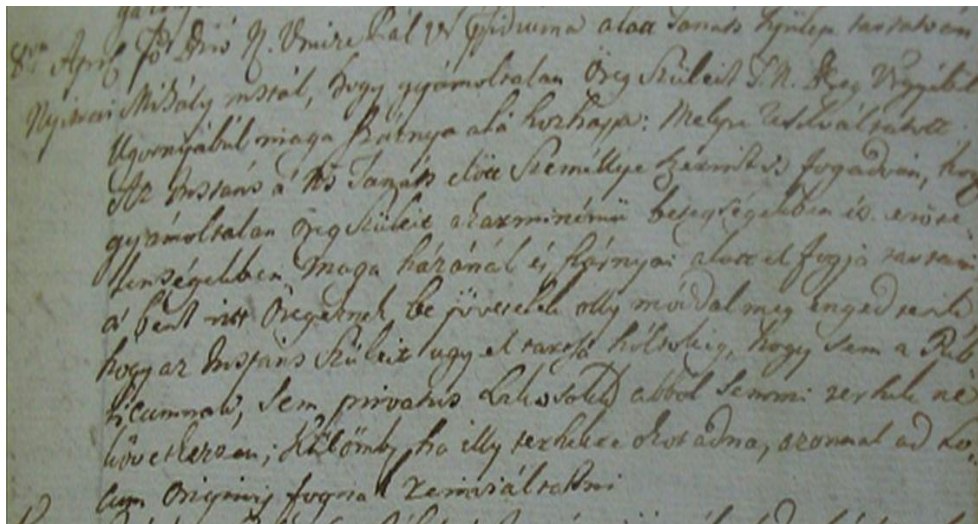 8va Apr. fő Biró N. Vincze Pál Ur alatt Tanáts Gyűlés tartatván
Nyitrai Mihály instál, hogy gyámoltalan Öreg Szüleit
Ugornyábúl maga szárnya alá hozhassa: Melyre
Az Instáns a' Ns Tanáts előtt Személlye szerint is fogadván, hogy
gyámoltalan Öreg Szüleit akarminémű betegségekben és erőte-
lenségekben maga házánál és szárnyai alatt el fogja tartani
a' bent írtt Öregeknek be jövetelek olly móddal meg engedtetik
hogy az Instans Szüleit ugy el tartsa hóltokig, hogy sem a Pub-
licumnak, sem privatus Lakosok abból semmi terhek ne
következzen; Külömb. ha illy terhekre okot adna, azonnal ad lo-
cum Originis fognak